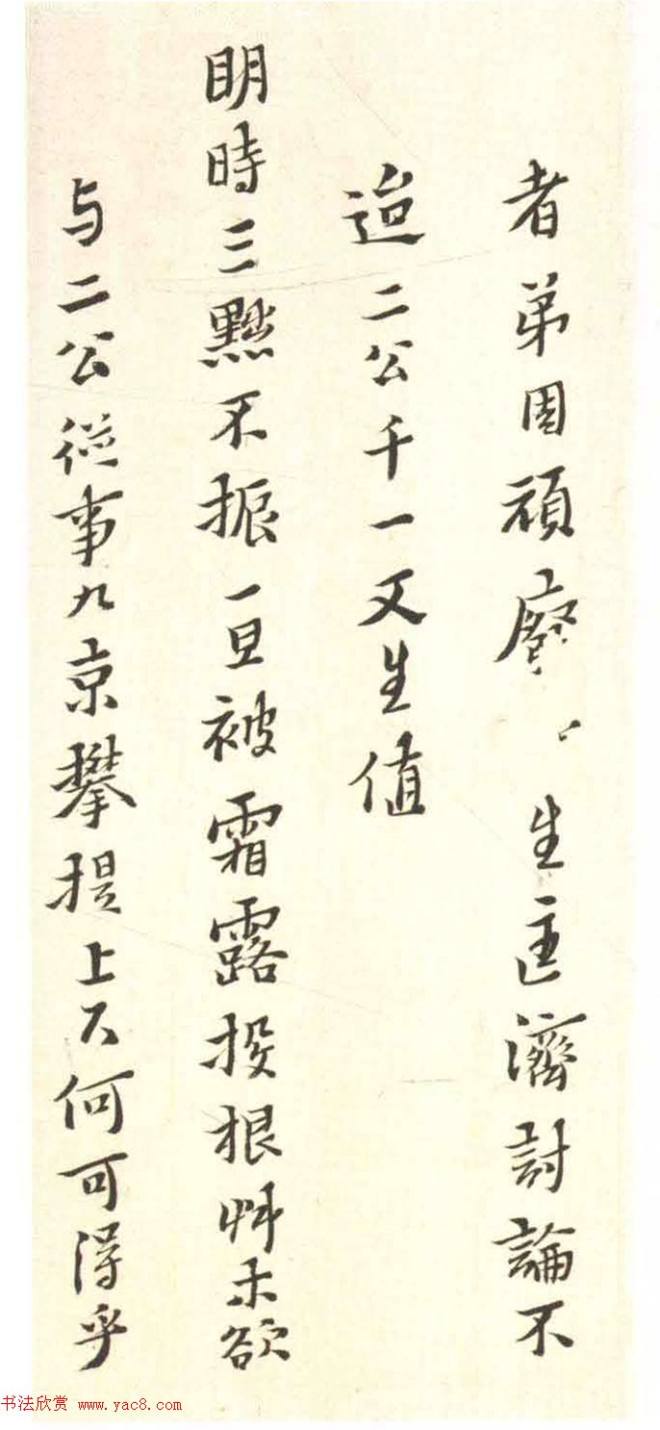 者弟固頑廢、生匡濟討論不
迨二公千一又生值
明時三黜不振一旦被霜露投根草木欲
与二公從事九京攀提上下何可得乎
书法欣赏 www.yac8.com